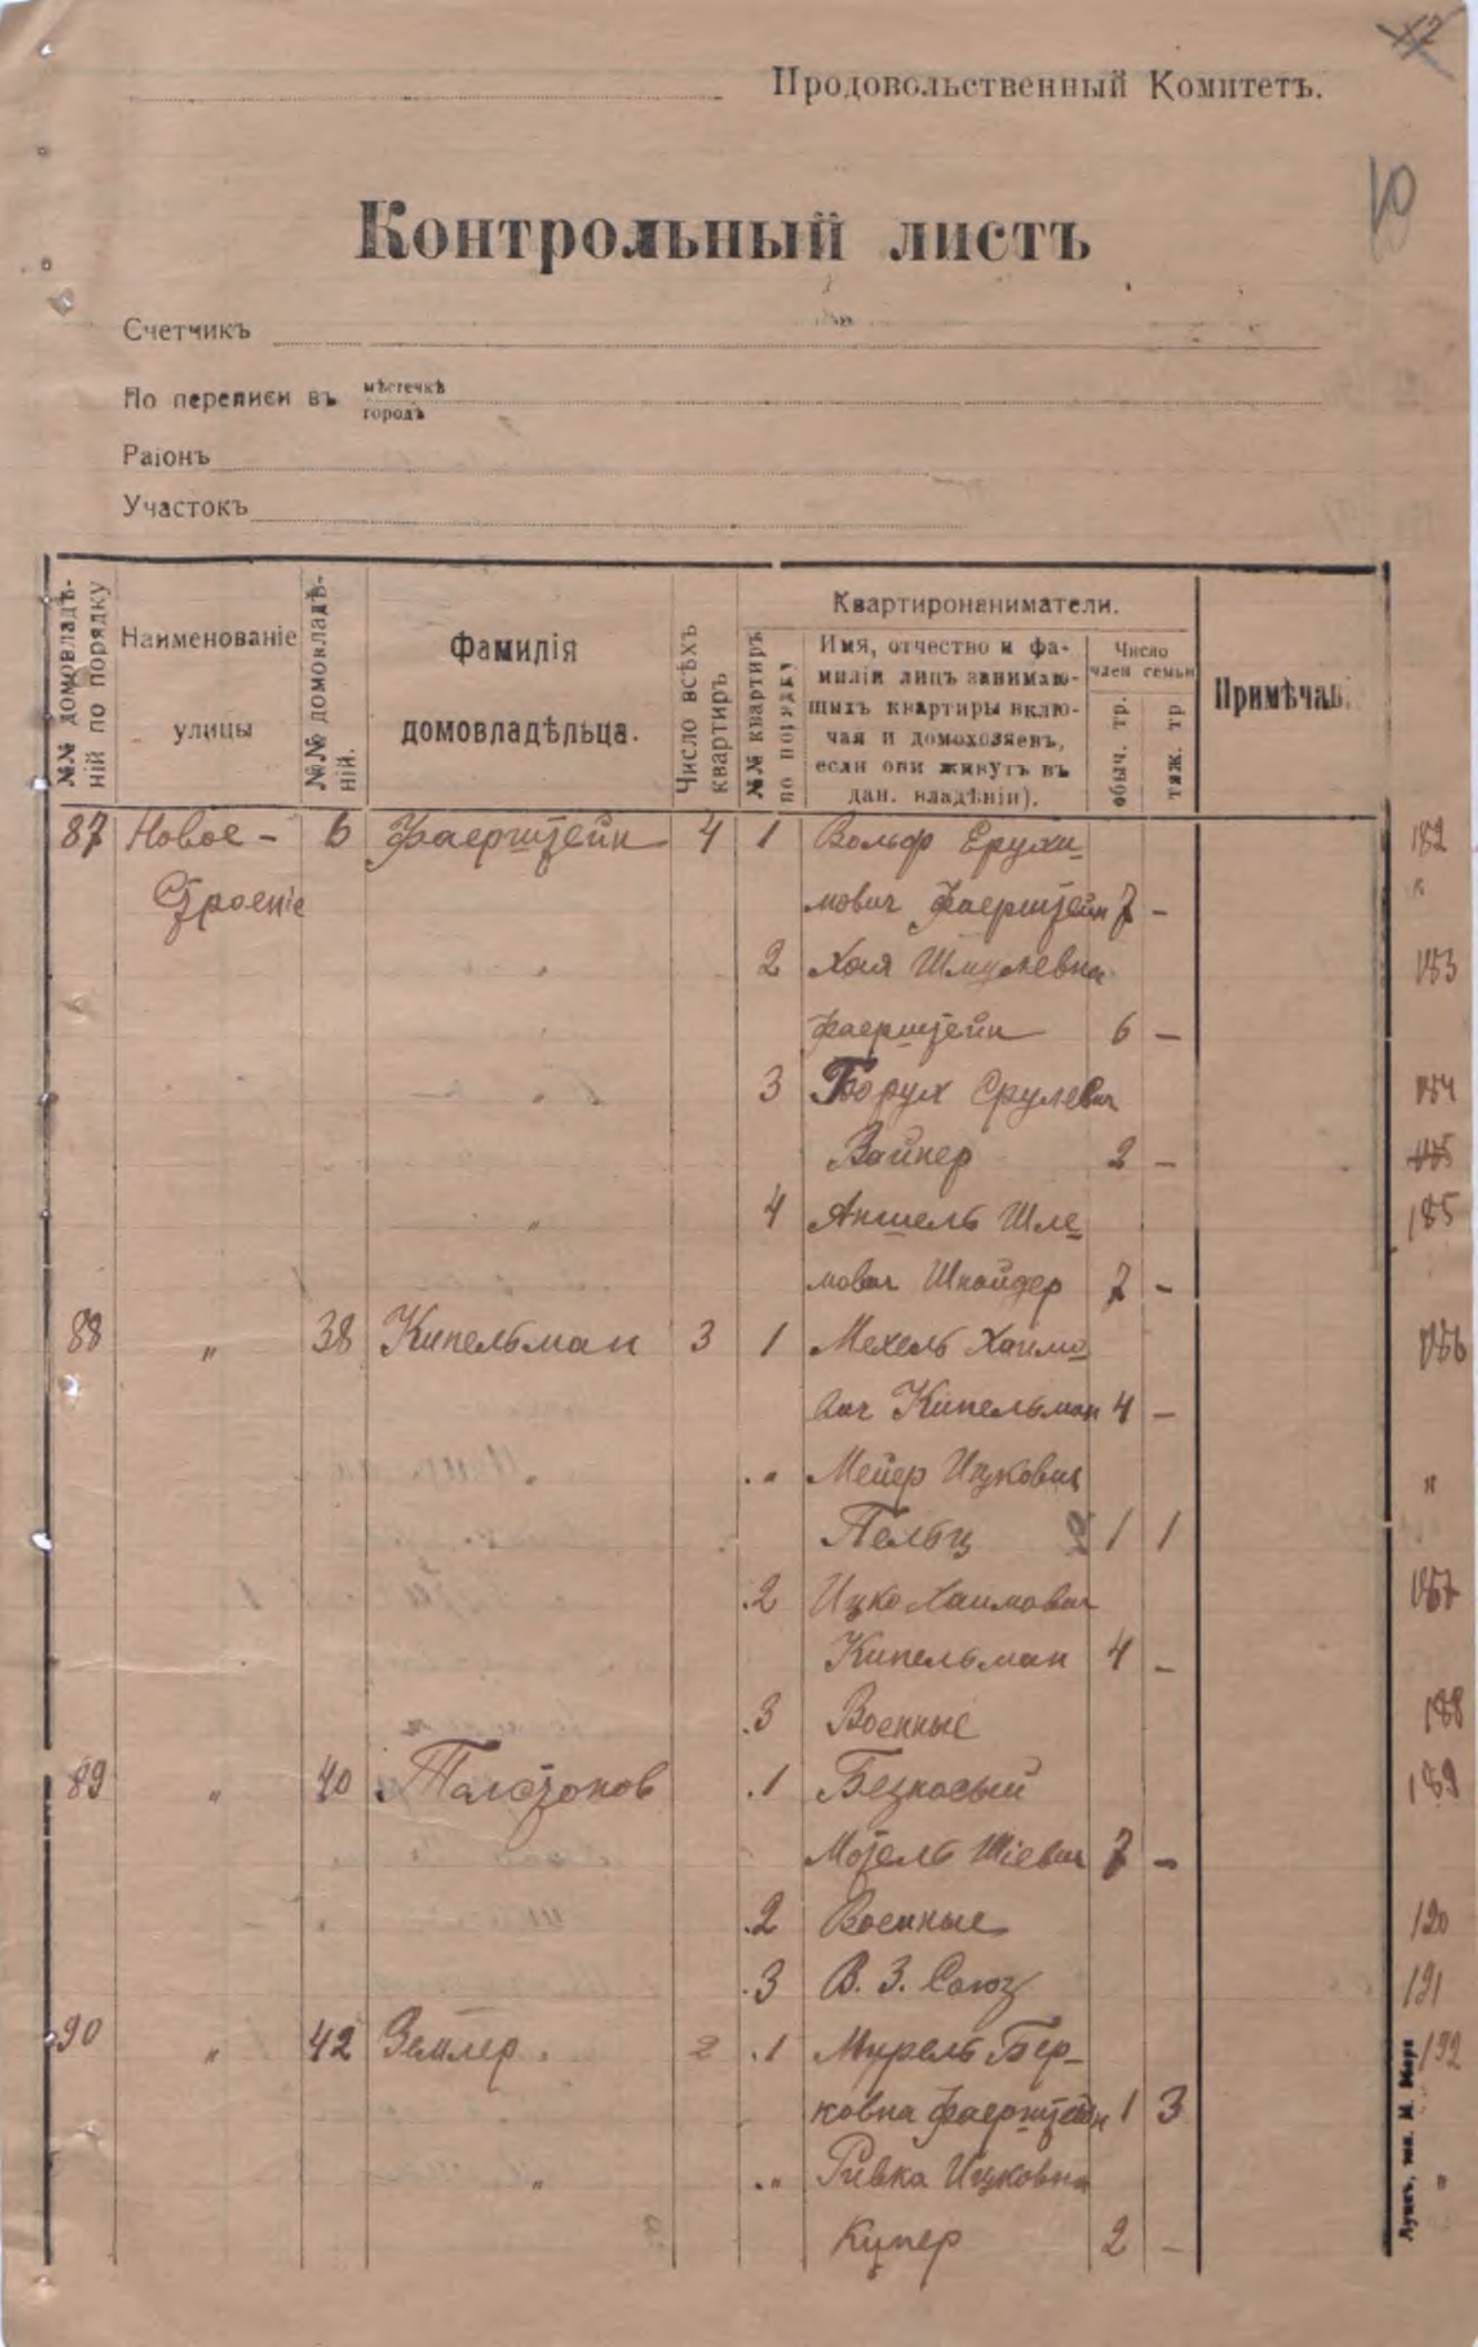 Продовольственный Комитетъ.
Контрольный листъ
Счетчикъ
По переписи въ мѣстечкѣ
городѣ
Раіонъ
Участокъ
№№ домовладѣ-
ній по порядку
Наименованіе
улицы
№№ домовладѣ-
ній.
Фамилія
домовладѣльца.
Число всѣхъ
квартиръ
Квартиронаниматели.
№№ квартиръ
по порядку
Имя, отчество и фа-
милія лицъ занимаю-
щихъ квартиры вклю-
чая и домохозяевъ,
если они живутъ въ
дан. владѣніи).
Число
член семьи
обыч. тр.
тяж. тр
Примѣчан.
87 Новое - 6 Фаерштейн 4 1 Вольф Ерухи- 182
Строеніе мович Фаерштейн 7 - "
" 2 Хая Шмулевна 183
Фаерштейн 6 -
" 3 Борух Срулевич 184
Вайнер 2 - 185
" 4 Аншель Шле- 185
мович Шнайдер 7 -
88 " 38 Кипельман 3 1 Мехель Хаимо- 186
вич Кипельман 4 -
" " Мейер Ицкович "
Пельц 1 1
2 Ицко Хаимович 187
Кипельман 4 -
3 Военные 188
89 " 40 Толстонов 1 Безносый 189
Мотель Шіевич 7 -
2 Военные 190
3 В. З. Союз 191
90 " 42 Землер 2 1 Мирель Бер- 192
ковна Фаерштейн 1 3
" " Ривка Ицковна "
Купер 2 -